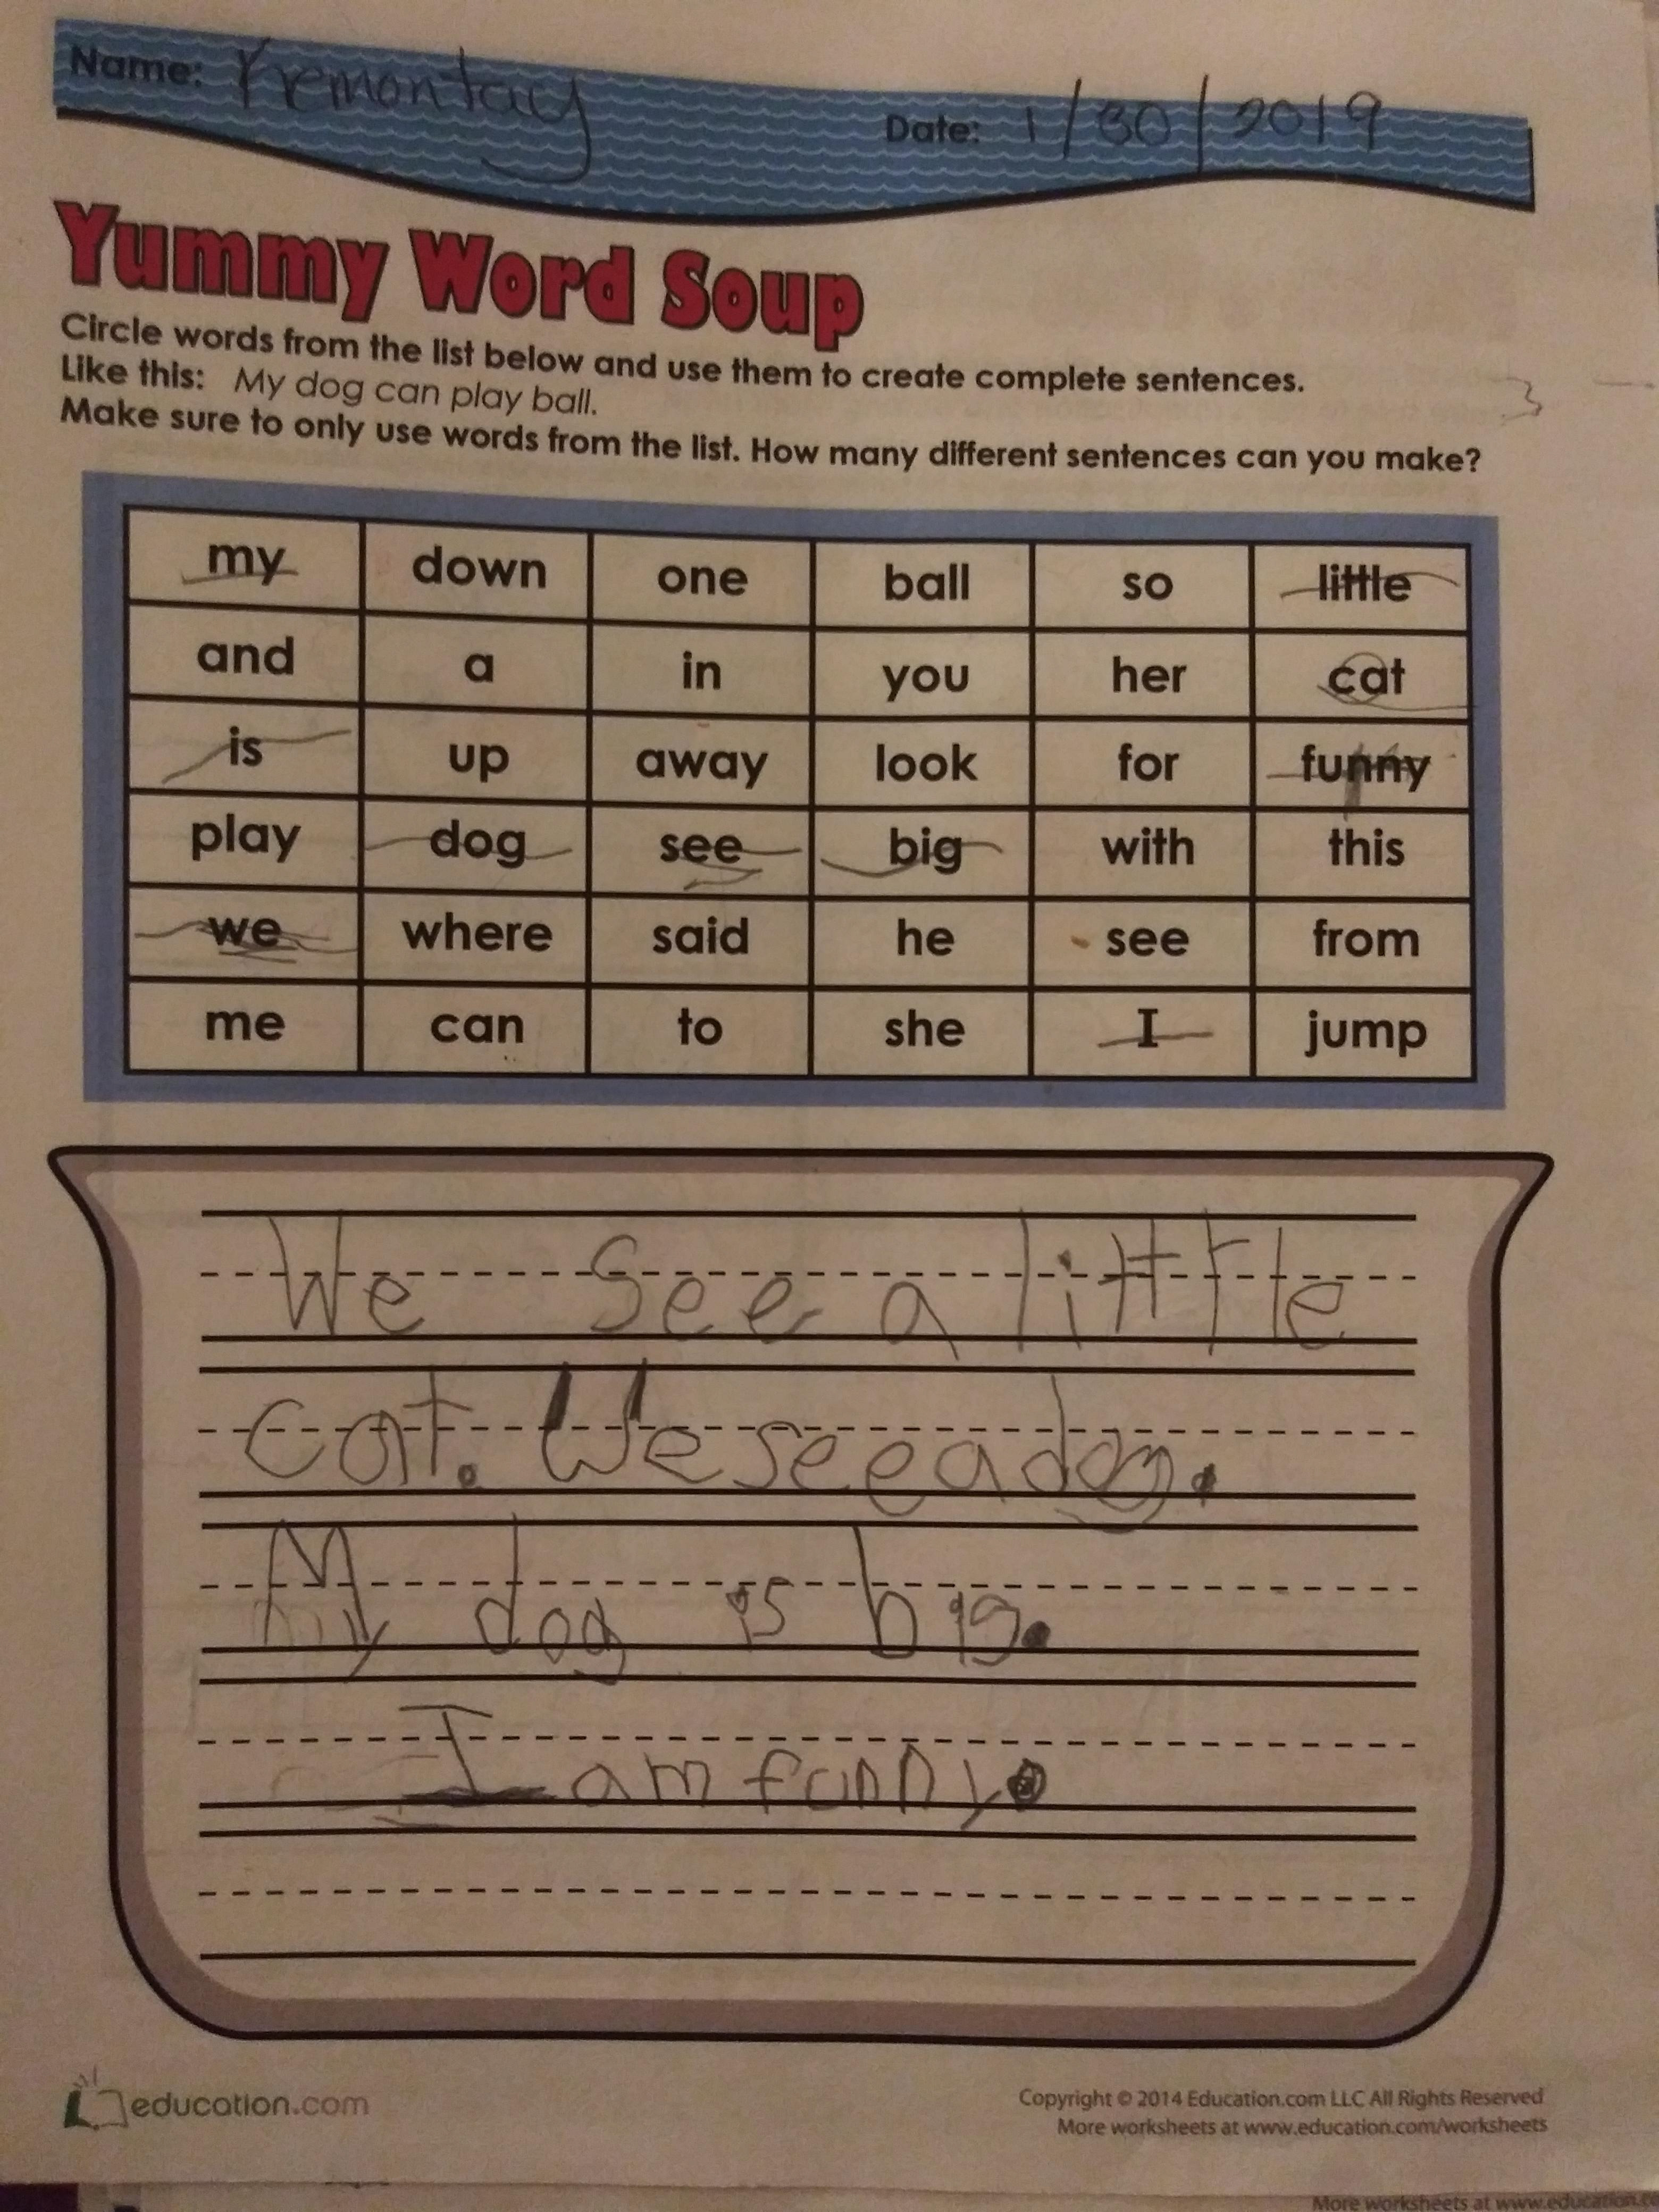 Name: Kremontay Date: 1/30/2019
Yummy Word Soup
Circle words from the list below and use them to create complete sentences.
Like this: My dog can play ball.
Make sure to only use words from the list. How many different sentences can you make?
3
my down one ball so little
and a in you her cat
is up away look for funny
play dog see big with this
we where said he see from
me can to she I jump
We See a little
cat. We see a dog.
My dog is big.
I am funny.
education.com
Copyright © 2014 Education.com LLC All Rights Reserved
More worksheets at www.education.com/worksheets
More worksheets at www.education.co